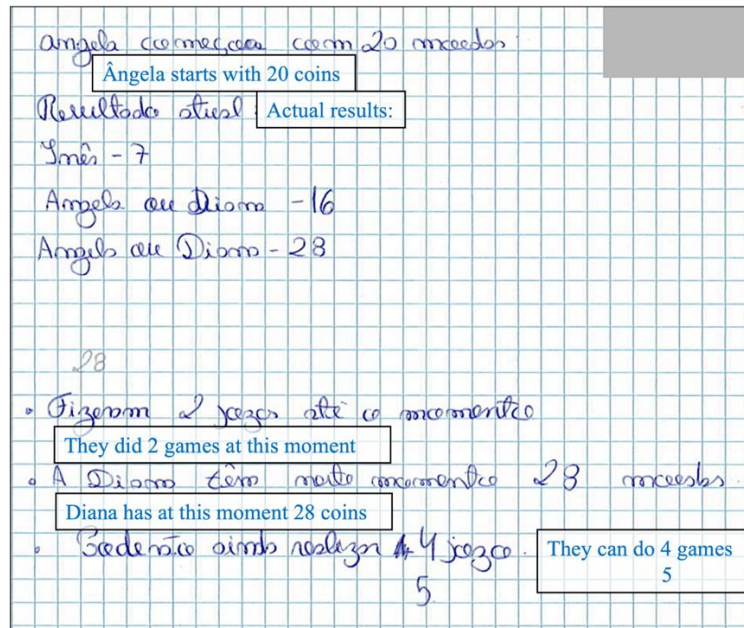 Angela começou com 20 moedas
Ângela starts with 20 coins
Resultado atual:
Actual results:
Inês - 7
Angela ou Diana - 16
Angela ou Diana - 28
28
• Fizeram 2 jogos até o momento
They did 2 games at this moment
• A Diana têm neste momento 28 moedas.
Diana has at this moment 28 coins
• Poderão ainda realizar 4 jogo.
They can do 4 games
5
5